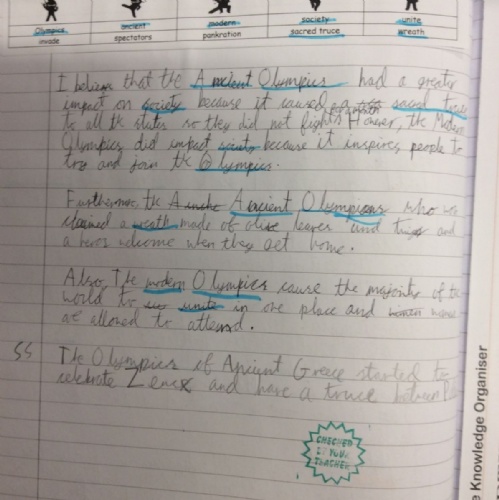 Olympics ancient modern society unite
invade spectators pankration sacred truce wreath
I believe that the Ancient Olympics had a greater
impact on society because it caused a sacred truce
to all the states so they did not fight. However, the Modern
Olympics did impact society because it inspires people to
try and join the Olympics.
Furthermore, the Ancient Olympians who
claimed a wreath made of olive leaves and and
a heros welcome when they get home.
Also, The modern Olympics cause the majority of the
world to unite in one place and
are allowed to attend.
SS The Olympics of Ancient Greece started to
celebrate and have a truce between
CHECKED
BY YOUR
TEACHER
Knowledge Organiser